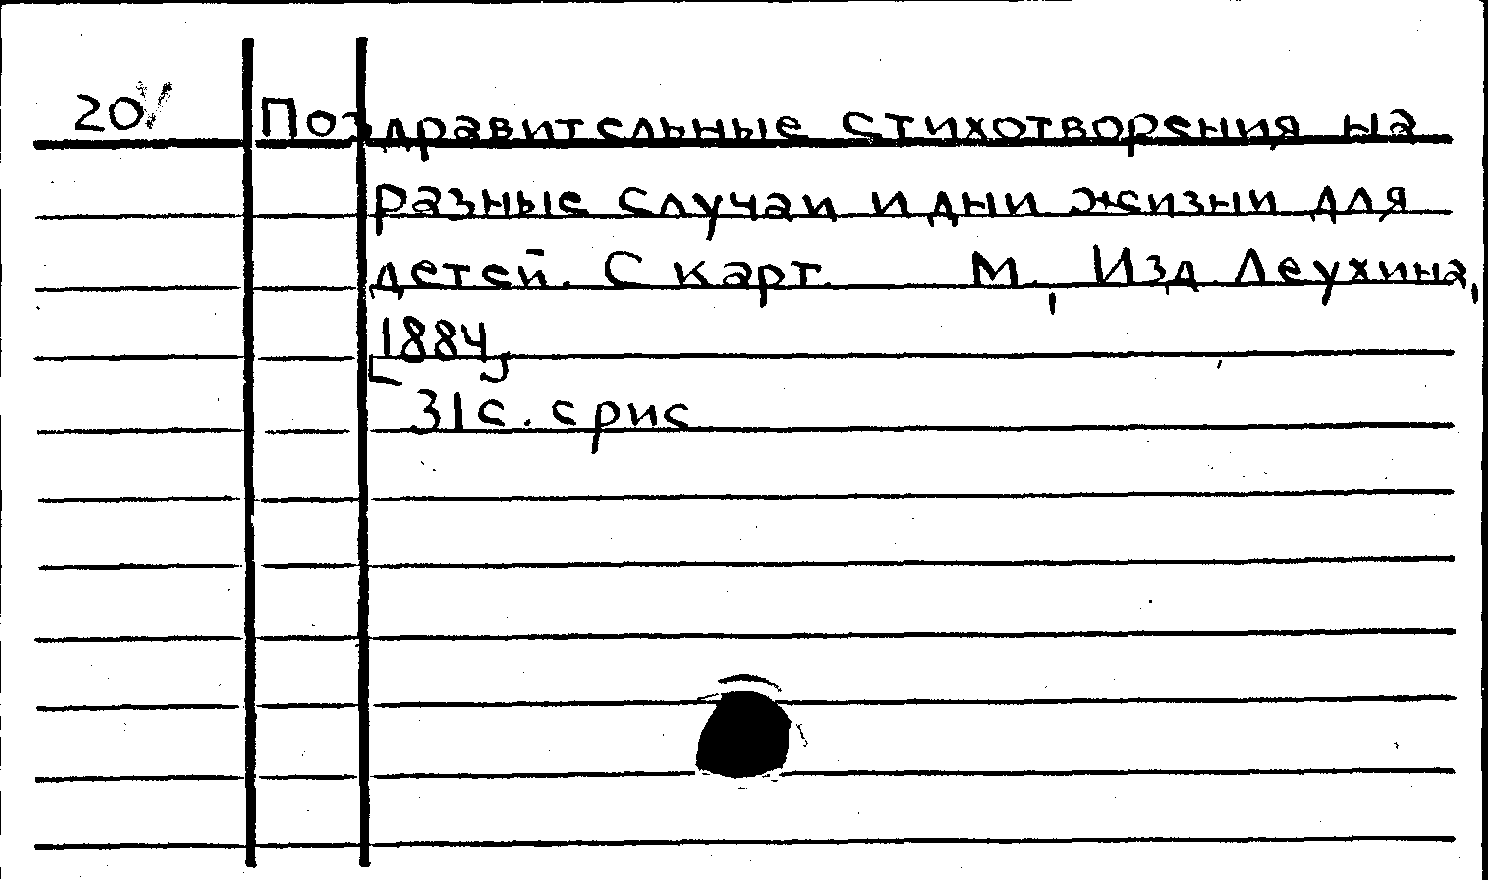 20 Поздравительные стихотворения на
разные случаи и дни жизни для
детей. С карт. М., Изд. Леухина,
1884,
31 с. с рис.